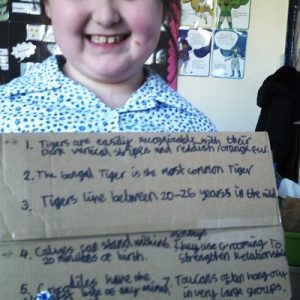 1. Tigers are easily recognisable with their
Dark vertical stripes and reddish/orange fur
2. The bengal Tiger is the most common Tiger
3. Tigers live between 20-26 years in the wild
4. Calves can stand within
20 minutes of birth.
Monkeys
6. They use Grooming To
Strengthen Relationship
5. Crocodiles have the
7. Toucans often hang out
in very large groups.